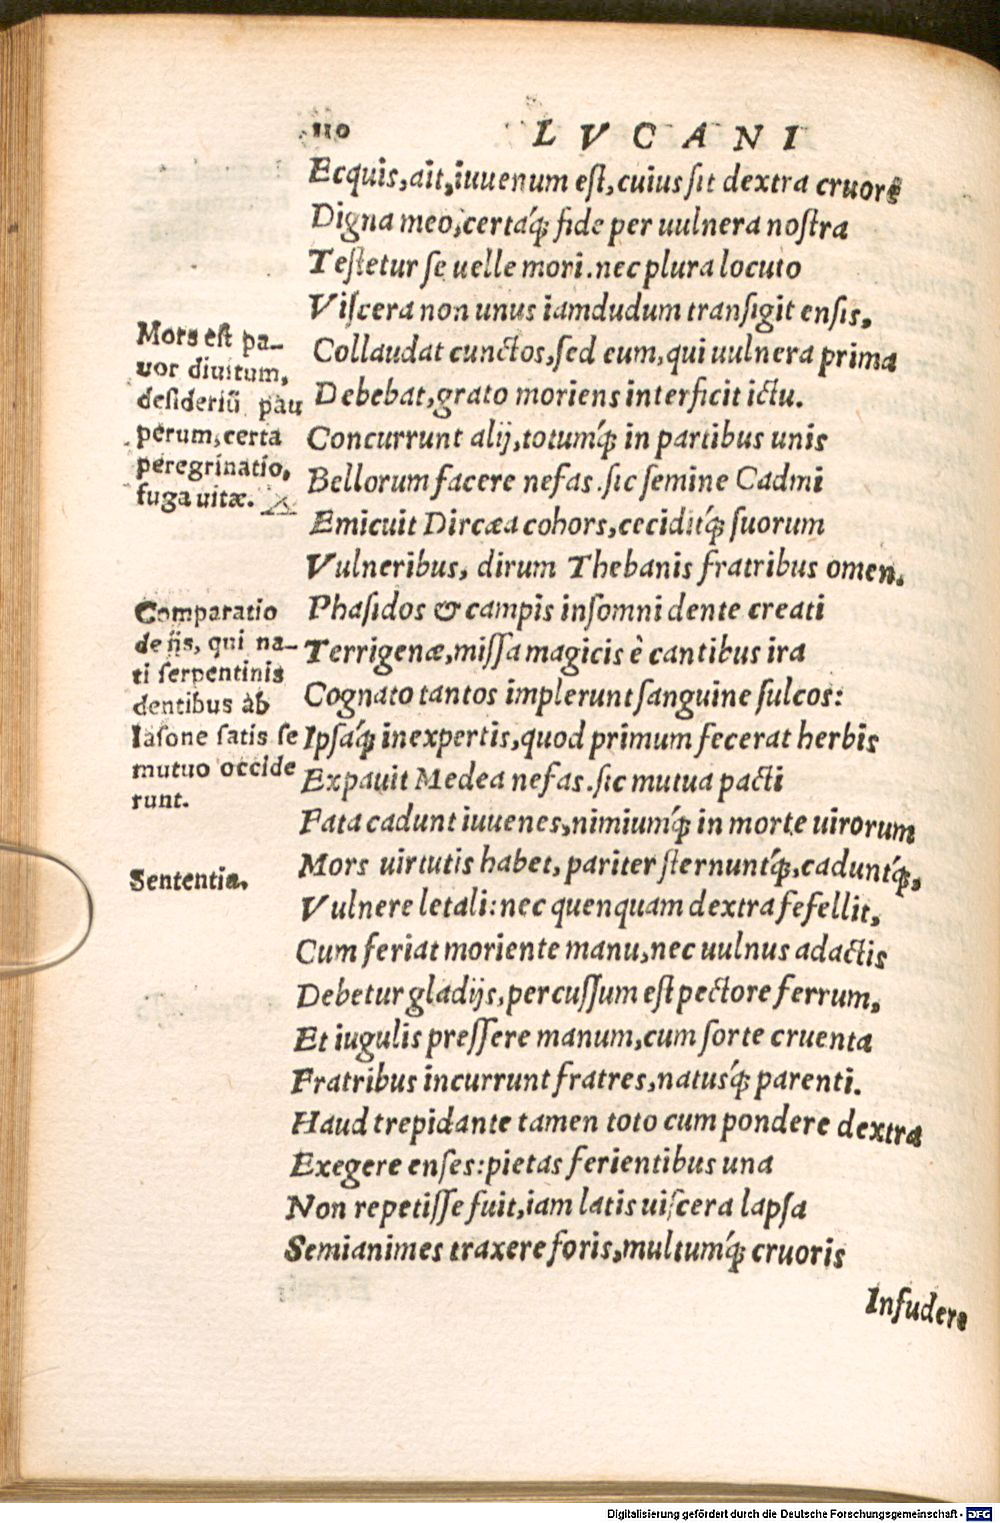 110 LVCANI
Ecquis, ait, iuuenum est, cuius sit dextra cruore
Digna meo, certaq́; fide per uulnera nostra
Testetur se uelle mori. nec plura locuto
Viscera non unus iamdudum transigit ensis,
Collaudat cunctos, sed eum, qui uulnera prima
Debebat, grato moriens interficit ictu.
Concurrunt alij, totumq́; in partibus unis
Bellorum facere nefas. sic semine Cadmi
Emicuit Dircæa cohors, ceciditq́; suorum
Vulneribus, dirum Thebanis fratribus omen.
Phasidos & campis insomni dente creati
Terrigenæ, missa magicis è cantibus ira
Cognato tantos implerunt sanguine sulcos:
Ipsaq́; inexpertis, quod primum fecerat herbis
Expauit Medea nefas. sic mutua pacti
Fata cadunt iuuenes, nimiumq́; in morte uirorum
Mors uirtutis habet, pariter sternuntq́;, caduntq́;,
Vulnere letali: nec quenquam dextra fefellit,
Cum feriat moriente manu, nec uulnus adactis
Debetur gladijs, percussum est pectore ferrum,
Et iugulis pressere manum, cum sorte cruenta
Fratribus incurrunt fratres, natusq́; parenti.
Haud trepidante tamen toto cum pondere dextra
Exegere enses: pietas ferientibus una
Non repetisse fuit, iam latis uiscera lapsa
Semianimes traxere foris, multumq́; cruoris
Infudere
Mors est pa-
uor diuitum,
desideriũ pau
perum, certa
peregrinatio,
fuga uitæ.
Comparatio
de ijs, qui na-
ti serpentinis
dentibus àb
Iasone satis se
mutuo occide
runt.
Sententia.
Digitalisierung gefördert durch die Deutsche Forschungsgemeinschaft - DFG